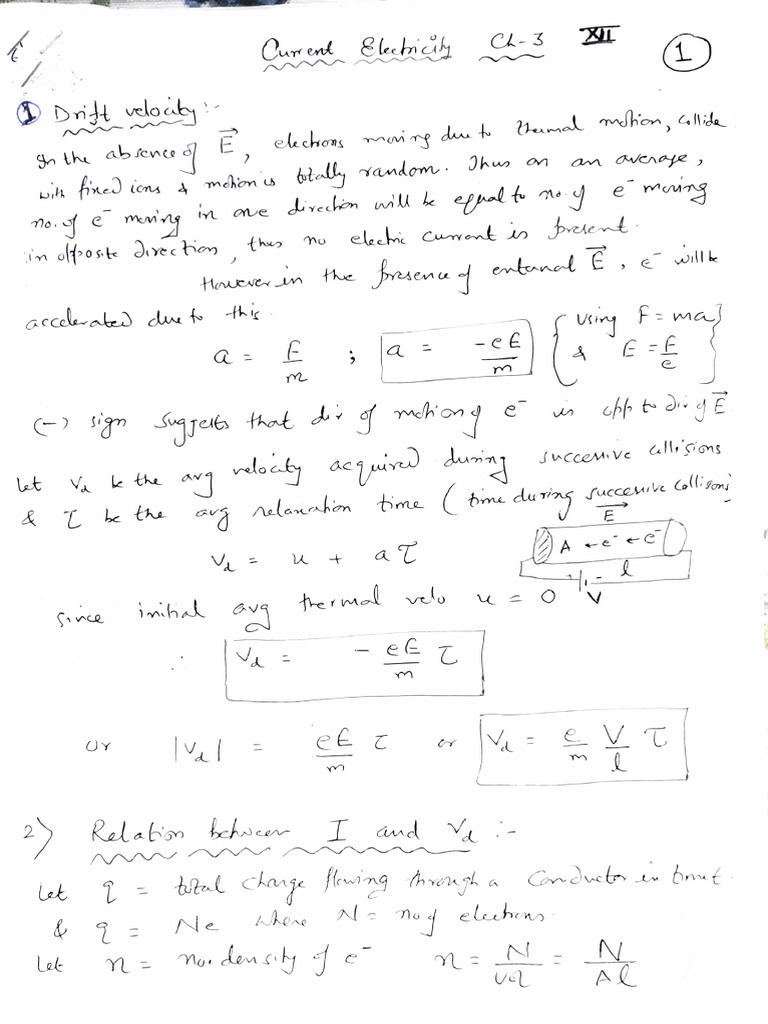 Current Electricity Ch-3 XII
1
① Drift velocity :-
In the absence of E⃗, electrons moving due to thermal motion, collide
with fixed ions & motion is totally random. Thus on an average,
no. of e⁻ moving in one direction will be equal to no. of e⁻ moving
in opposite direction, thus no electric current is present.
However in the presence of external E⃗, e⁻ will be
accelerated due to this.
a = F/m ; a = -eE/m { using F = ma } & E = F/e
(-) sign suggests that dir of motion of e⁻ is opp to dir of E⃗
Let Vd be the avg velocity acquired during successive collisions
& τ be the avg relaxation time (time during successive collisons)
Vd = u + aτ
E⃗
A ←e⁻ ←e⁻
l
V
since initial avg thermal velo u = 0
∴ Vd = - eE/m τ
or |Vd| = eE/m τ or Vd = e/m V/l τ
2) Relation between I and Vd :-
Let q = total charge flowing through a conductor in time t.
& q = Ne where N = no of electrons.
Let n = no. density of e⁻ n = N/Vol = N/Al